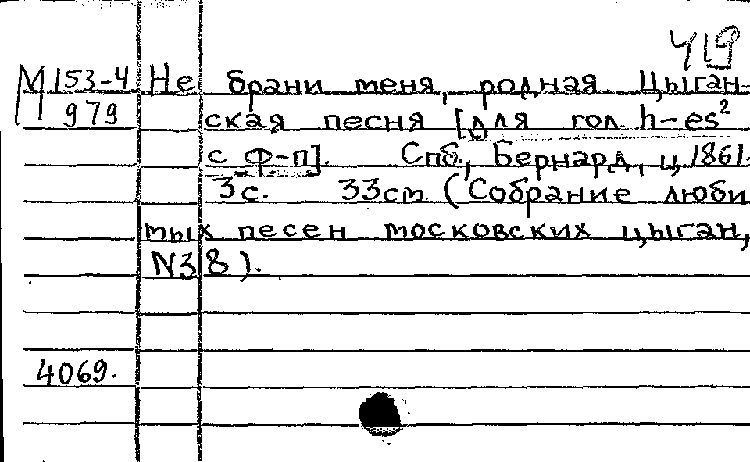 419
М153-4 Не брани меня, родная Цыган-
979 ская песня [для гол h-es²
с ф-п]. Спб., Бернард, ц. 1861.
3с. 33см (Собрание люби
мых песен московских цыган,
N38).
4069.